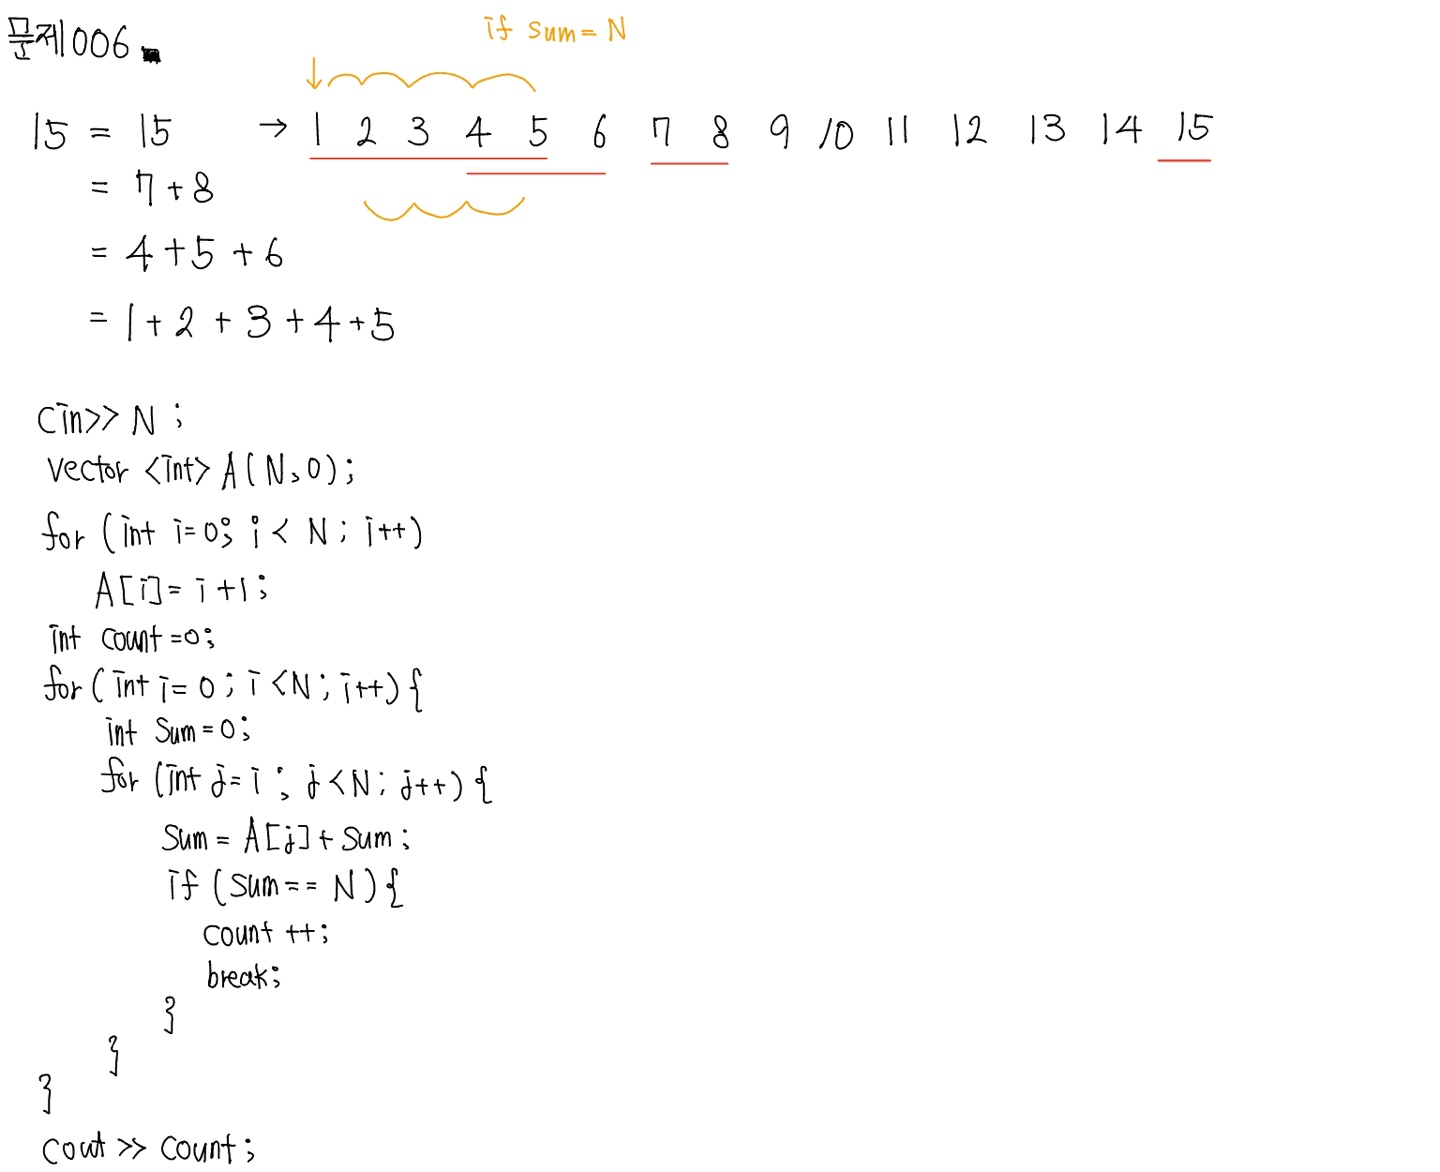 문제006.
if sum = N
15 = 15 → 1 2 3 4 5 6 7 8 9 10 11 12 13 14 15
= 7+8
= 4+5+6
= 1+2+3+4+5
cin>> N ;
vector <int> A(N,0);
for (int i=0; i< N ; i++)
A[i]= i+1;
int count=0;
for (int i= 0 ; i<N ; i++) {
int sum=0;
for (int j= i ; j<N ; j++) {
sum = A[j] + sum ;
if (sum == N) {
count ++;
break;
}
}
}
cout >> count ;